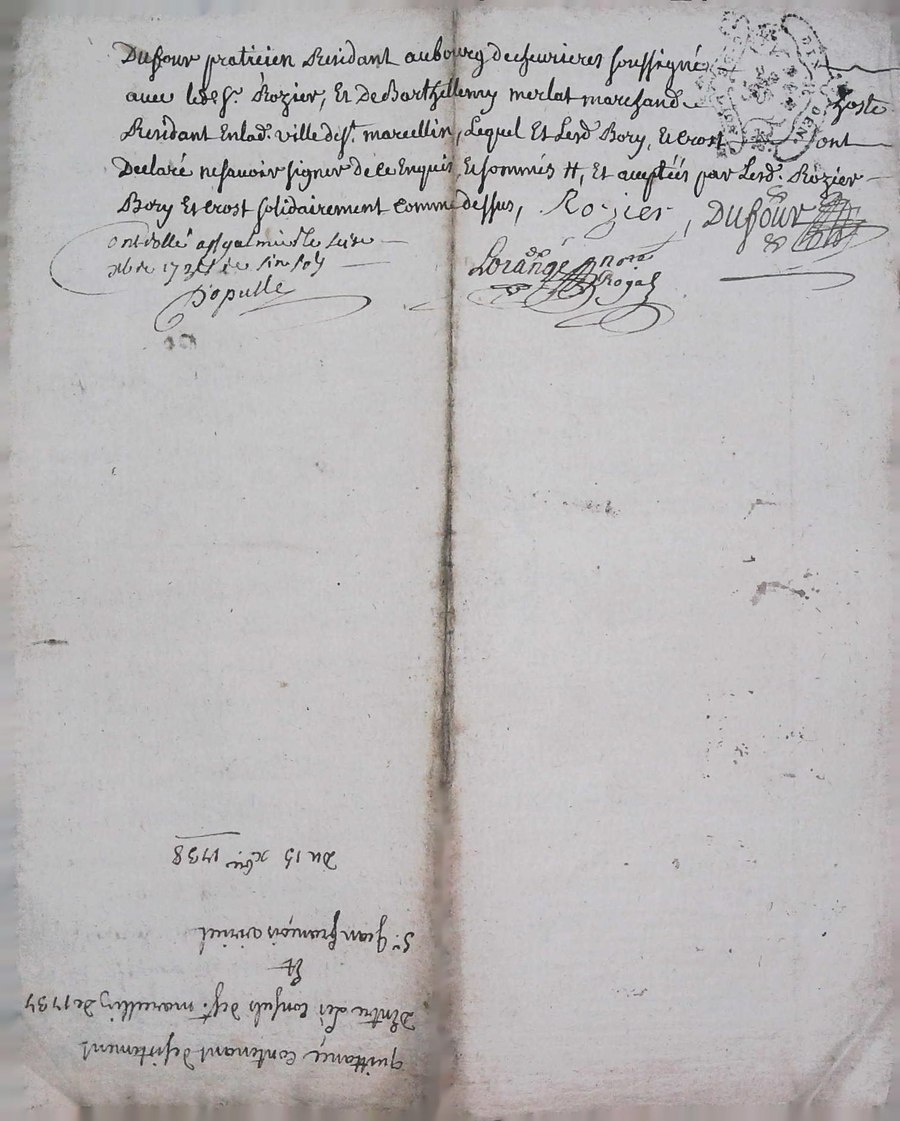 Dufour praticien Residant au bourg de chevrieres soussigné
avec led. Sr. Rozier, Et De Barthellemy merlat marchand hoste
Residant Enlad. ville de St. marcellin, Lequel Et Lesd. Bory, Et crost ont
Declaré ne savoir signer de ce Enquis Et sommés #, Et acceptées par Lesd. Rozier
Bory Et crost solidairement comme dessus, Rozier, Dufour
Controllé a St. marcellin le seize
xbre 1738
Lorange nore
Royal
quittance contenant departement
D'Entre Les Consuls de St. marcellin de 1737
Et
Sr. Jean françois
Du 15 xbre 1738